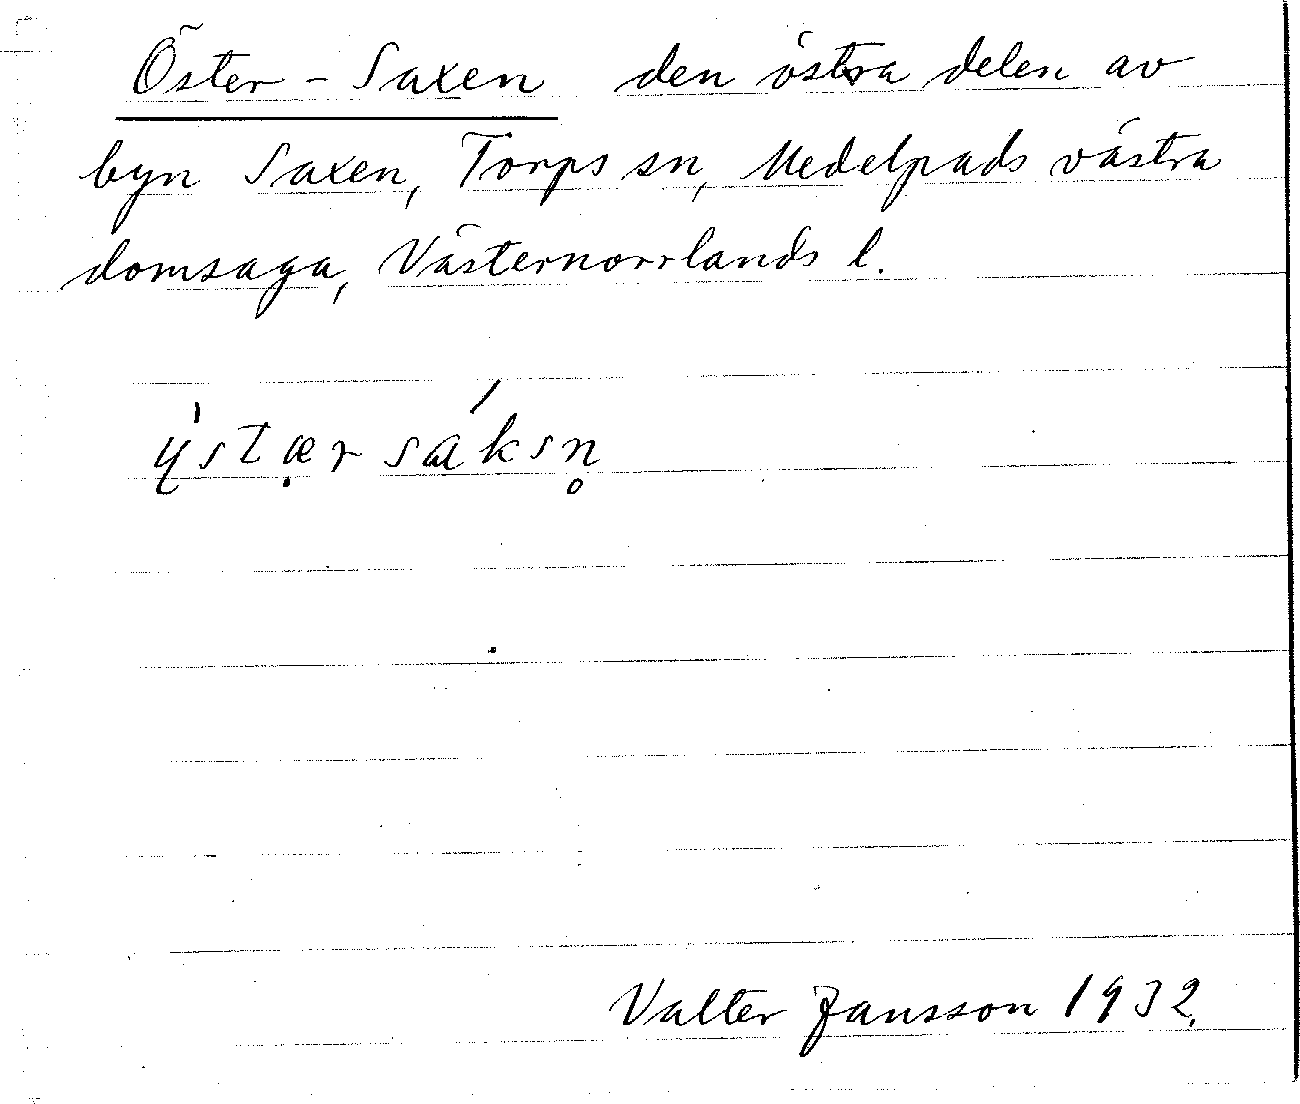 Öster-Saxen den östra delen av
byn Saxen, Torps sn, Medelpads västra
domsaga, Västernorrlands l.
ýstæ̣rsáksn̥
Valter Jansson 1932.